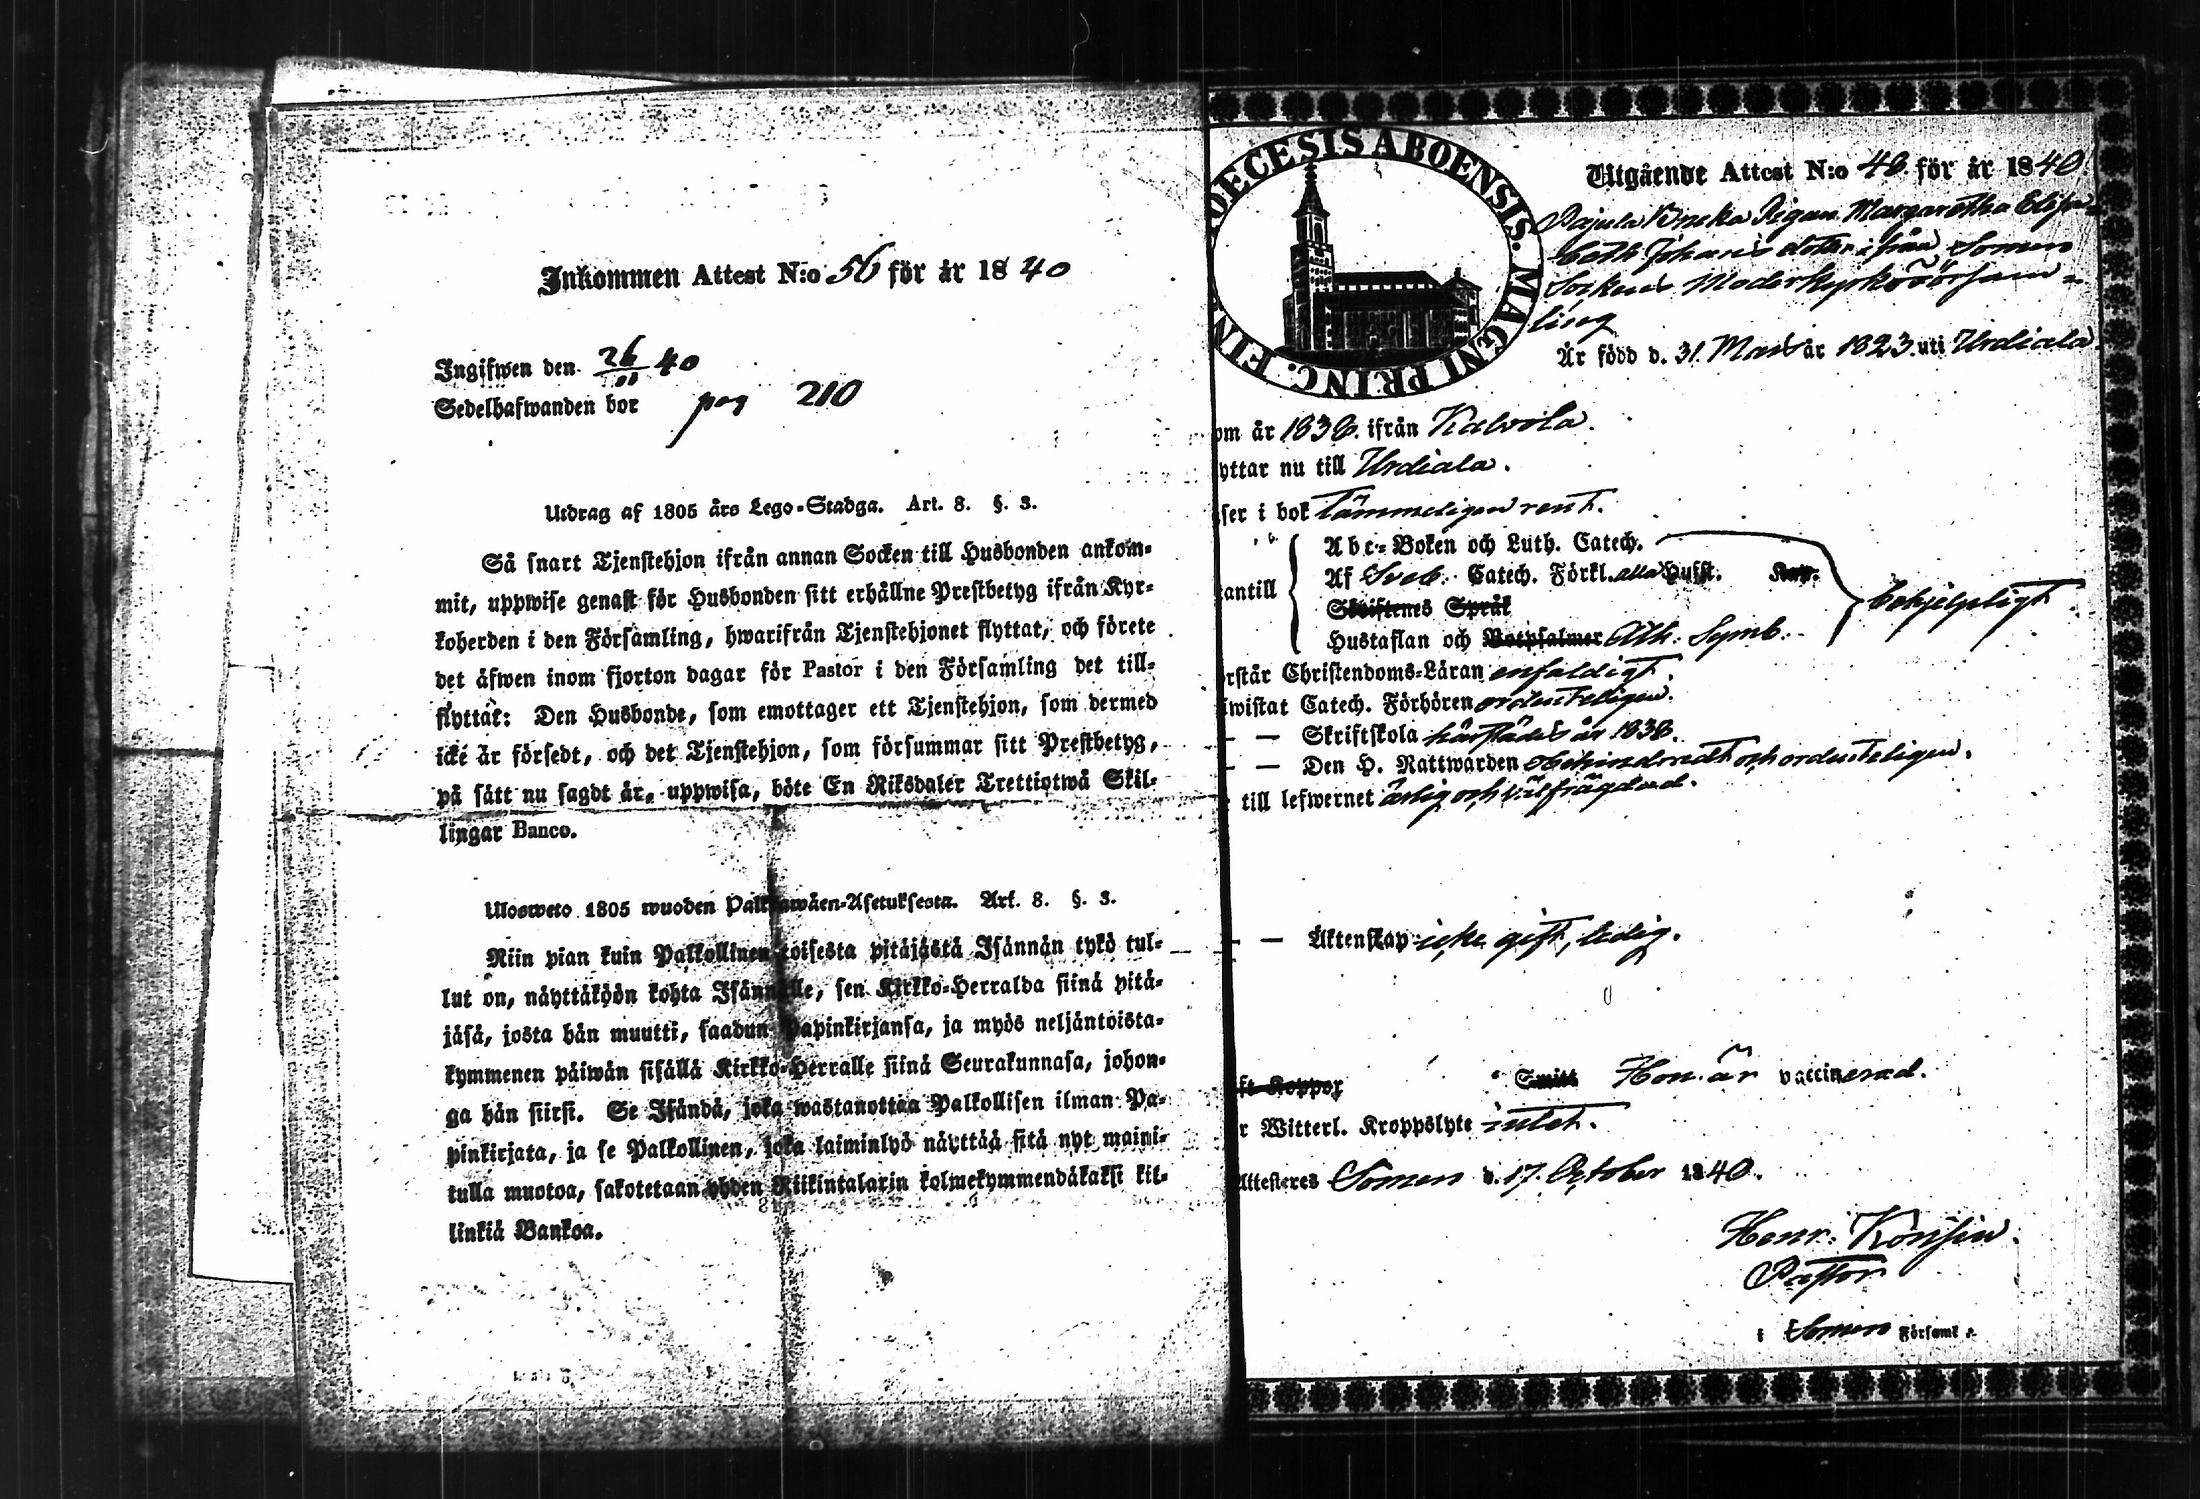 Inkommen Attest N:o 56 för år 1840
Ingifwen den 26/11 40
Sedelhafwanden bor pag 210
Utdrag af 1805 års Lego-Stadga. Art. 8. §. 3.
Så snart Tjenstehjon ifrån annan Socken till Husbonden ankom-
mit, uppwise genast för Husbonden sitt erhållne Prestbetyg ifrån Kyr-
koherden i den Församling, hwarifrån Tjenstehjonet flyttat, och förete
det äfwen inom fjorton dagar för Pastor i den Församling det till-
flyttat: Den Husbonde, som emottager ett Tjenstehjon, som dermed
icke är försedt, och det Tjenstehjon, som försummar sitt Prestbetyg,
på sätt nu sagdt är, uppwisa, böte En Riksdaler Trettiotwå Skil-
lingar Banco.
Ulosweto 1805 wuoden Palkkawäen-Asetuksesta. Art. 8. §. 3.
Niin pian kuin Palkollinen toisesta pitäjästä Isännän tykö tul-
lut on, näyttäköön kohta Isännälle, sen Kirkko-Herralda siinä pitä-
jäsä, josta hän muutti, saadun Papinkirjansa, ja myös neljäntoista-
kymmenen päiwän sisällä Kirkko-Herralle siinä Seurakunnasa, johon-
ga hän siirsi. Se Isändä, joka wastanottaa Palkollisen ilman Pa-
pinkirjata, ja se Palkollinen, joka laiminlyö näyttää sitä nyt maini-
tulla muotoa, sakotetaan yhden Riikintalarin kolmekymmendäkaksi kil-
linkiä Bankoa.
DIOECESIS ABOENSIS. MAGNI PRINC. FIN
Utgående Attest N:o 46 för år 1840
Pajula Pigan Margaretha Elisa-
beth Johansdotter ifrån Somero
Sockens Moderkyrkoförsam-
ling
Är född d. 31 Mars år 1823 uti Urdiala.
om år 1836. ifrån Kalvola.
yttar nu till Urdiala.
ser i bok tämmeligen rent.
antill
Abc-Boken och Luth. Catech.
Af Sveb. Catech. Förkl. alla Hufst. Kap.
Skriftenes Språk
Hustaflan och Botpsalmer Ath. Symb.
behjelpligt
rstår Christendoms-Läran enfaldigt.
wistat Catech. Förhören ordenteligen.
— — Skriftskola härstädes år 1838.
— — Den H. Nattwarden obehindradt och ordenteligen.
till lefwernet ärlig och välfrägdad.
— — Äktenskap icke gift, ledig.
ft Koppor Smitt Hon är vaccinerad.
r Witterl. Kroppslyte intet.
Attesteres Somero d. 17. October 1840.
Henr. Konsin.
Pastor
i Somero Församl.